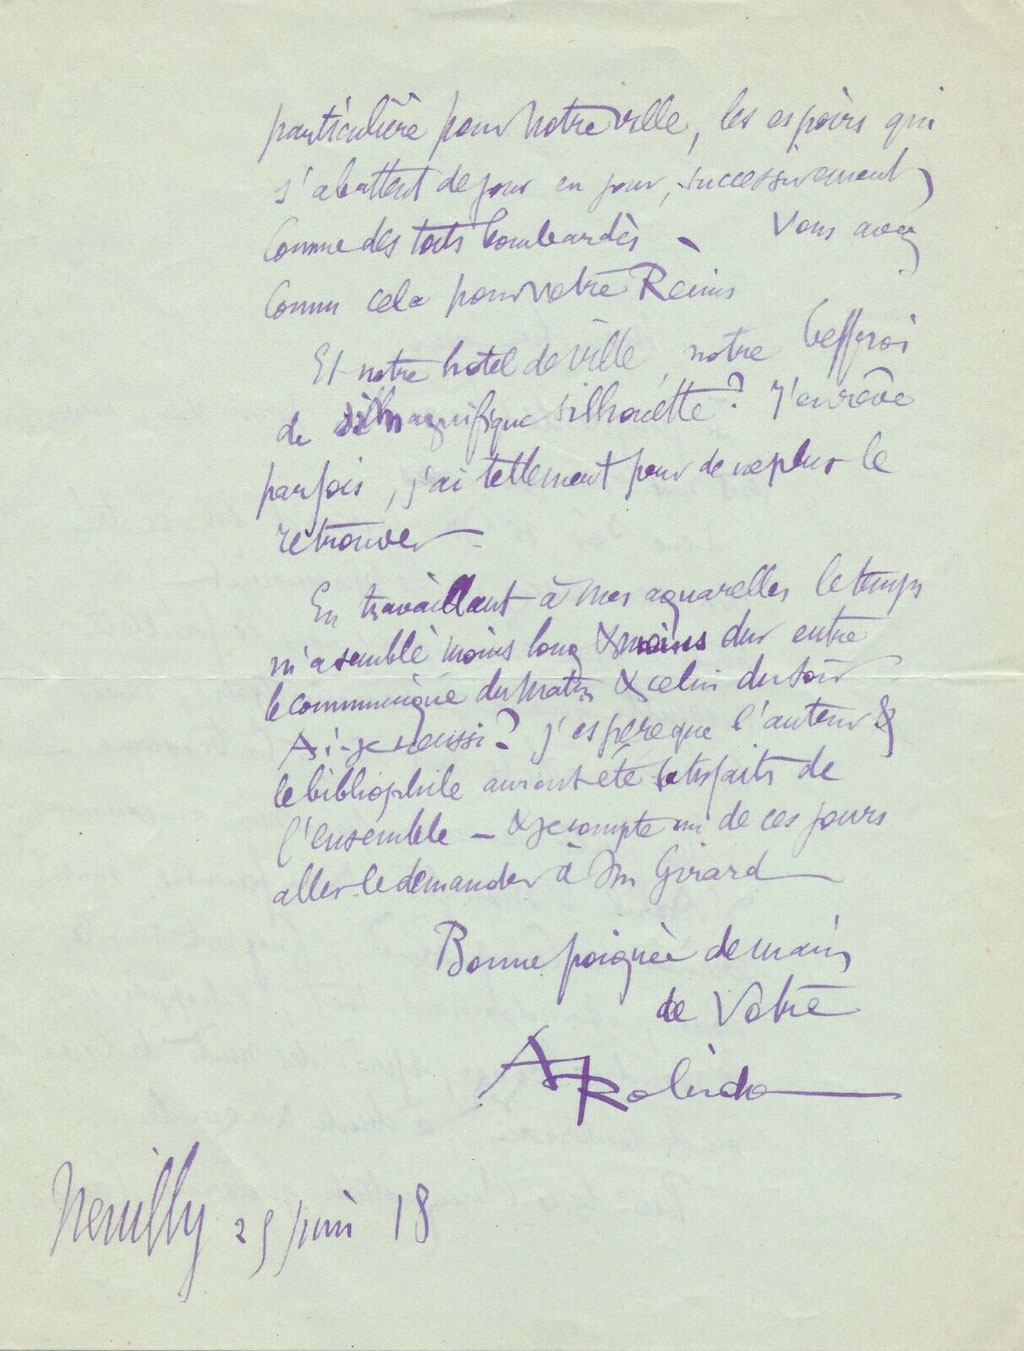 particulière pour notre ville, les espoirs qui
s'abattent de jour en jour, successivement,
comme des toits bombardés - Vous avez
connu cela pour votre Reims
Et notre hotel de ville, notre beffroi
de magnifique silhouette? J'en rêve
parfois, j'ai tellement peur de ne plus le
retrouver -
En travaillant à mes aquarelles le temps
m'a semblé moins long & moins dur entre
le communiqué du matin & celui du soir
Ai-je reussi? J'espere que l'auteur &
le bibliophile auront été satisfaits de
l'ensemble - & je compte un de ces jours
aller le demander à Mr Girard
Bonne poignée de main
de Votre
A Robida
Neuilly 25 juin 18